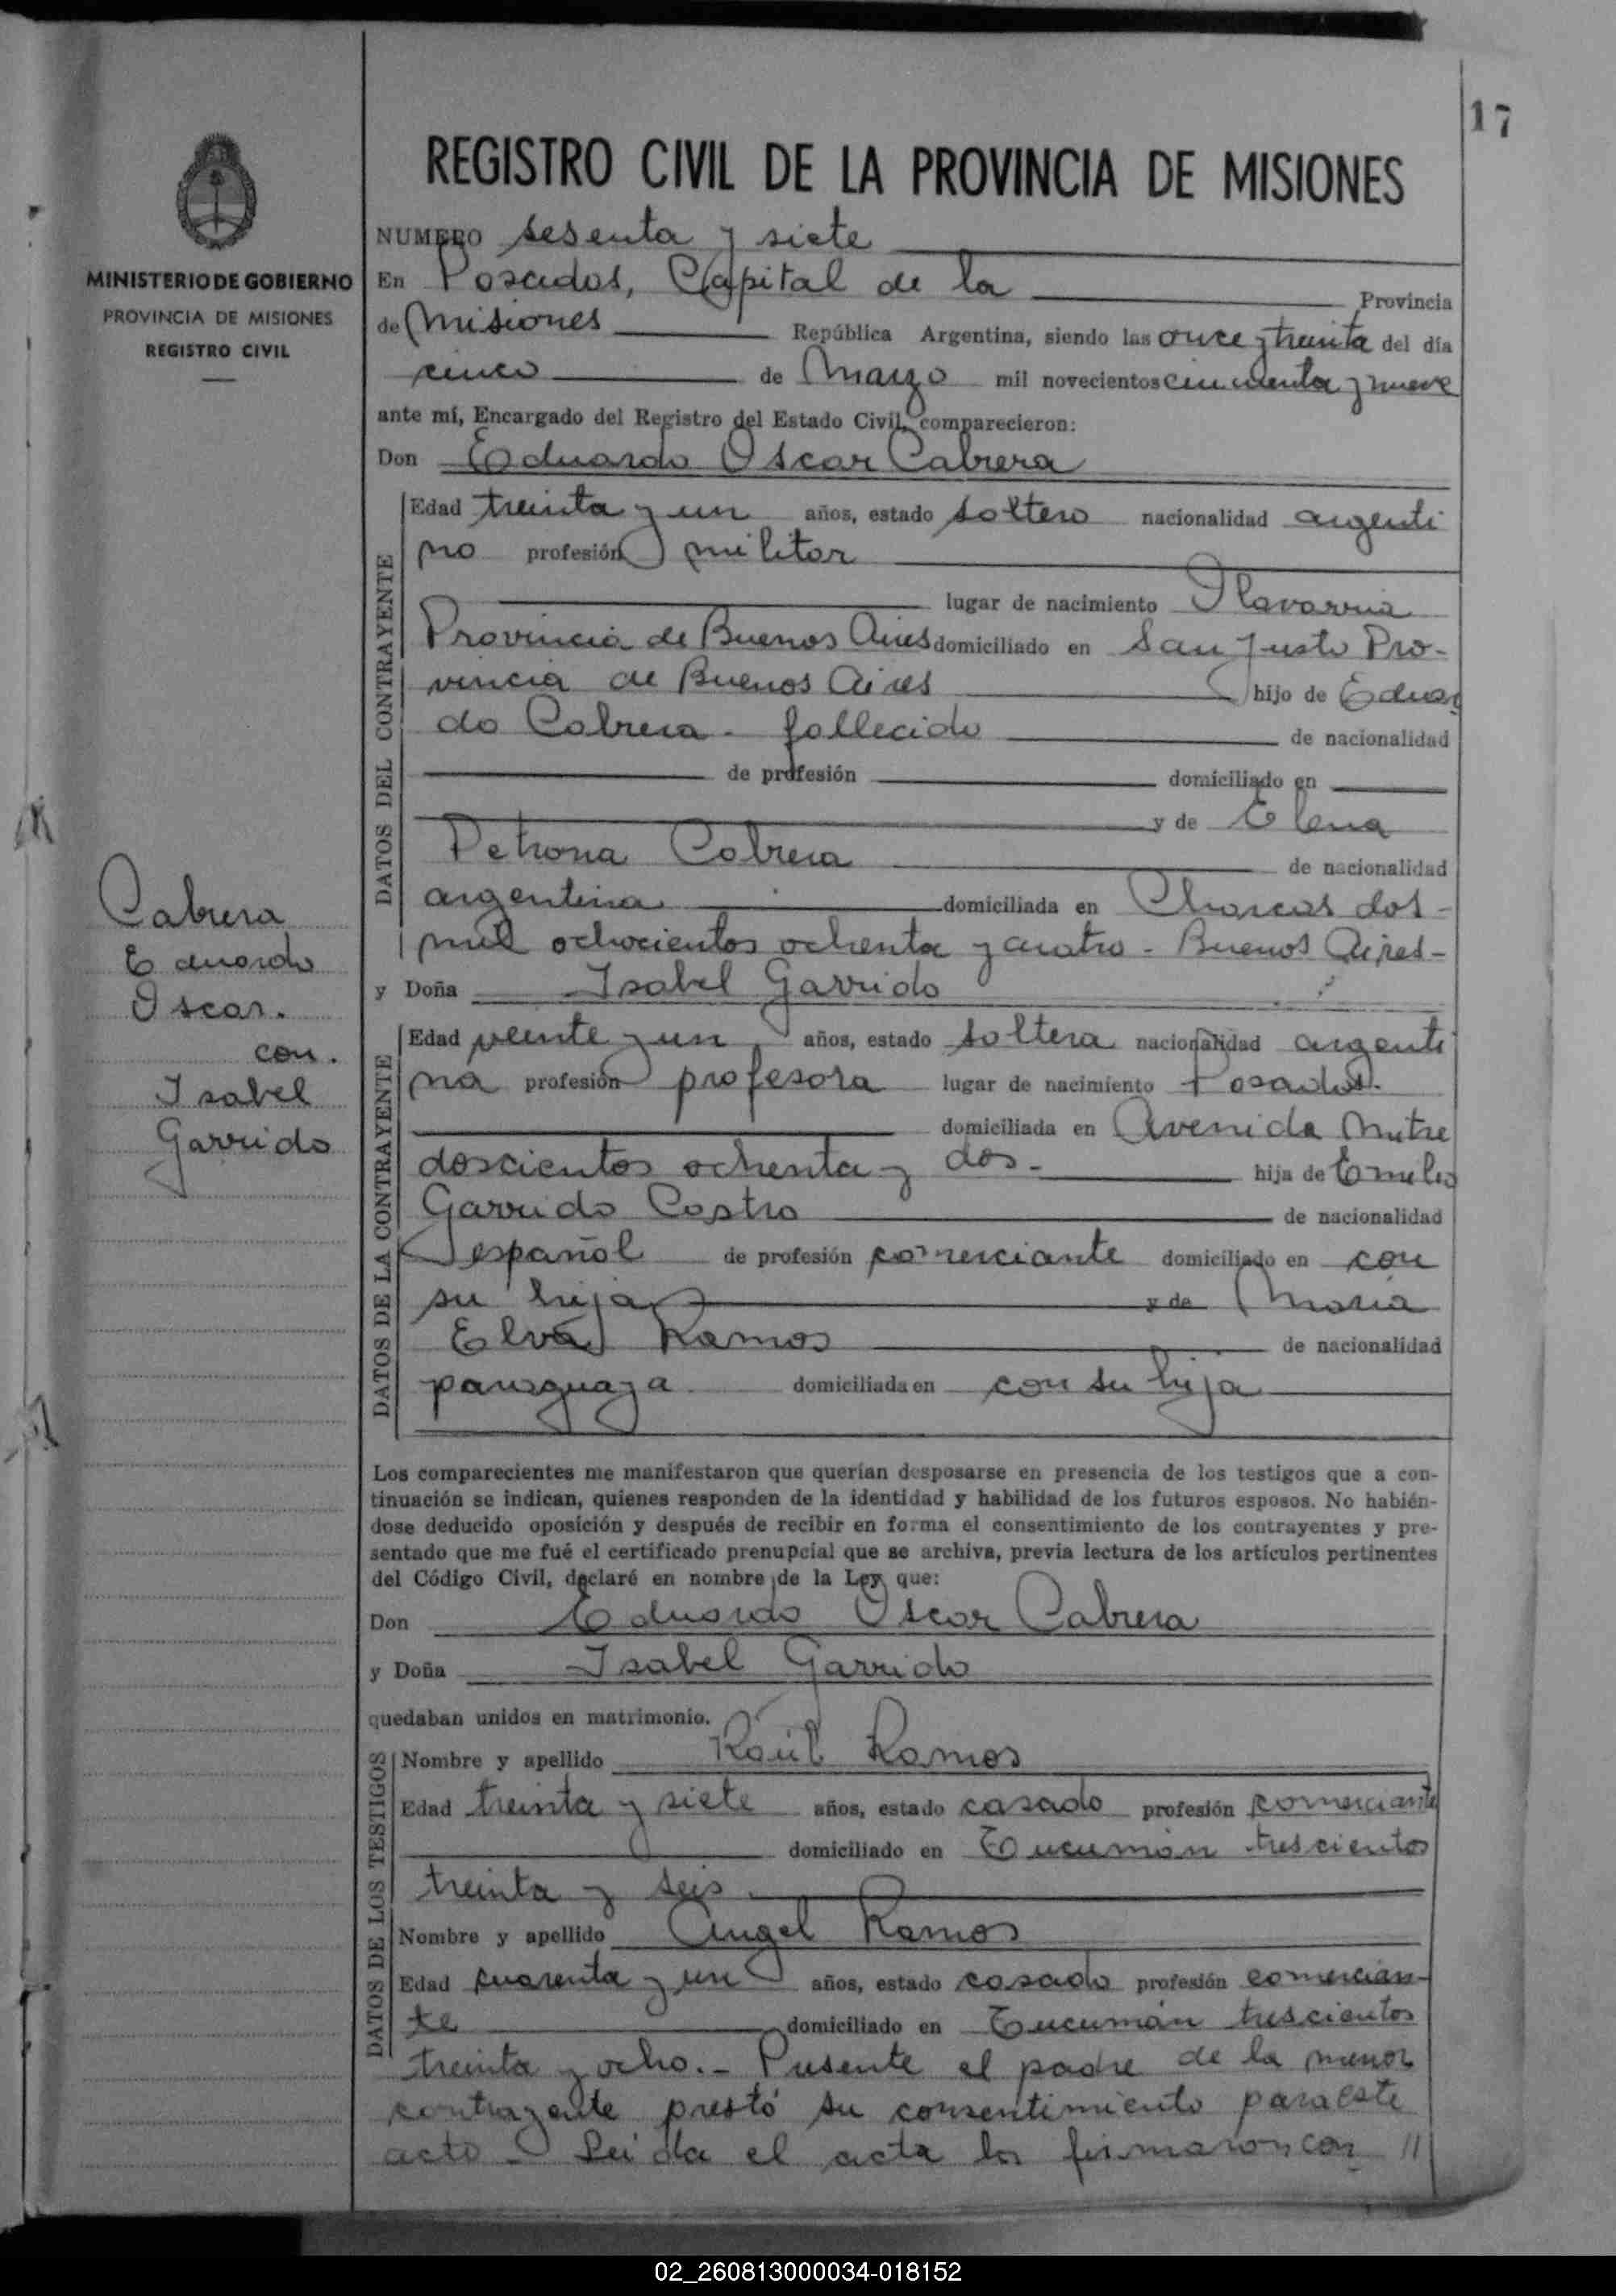 17
REGISTRO CIVIL DE LA PROVINCIA DE MISIONES
MINISTERIO DE GOBIERNO
PROVINCIA DE MISIONES
REGISTRO CIVIL
NUMERO sesenta y siete
En Posadas, Capital de la Provincia
de Misiones República Argentina, siendo las once y treinta del día
cinco de Marzo mil novecientos cincuenta y nueve
ante mí, Encargado del Registro del Estado Civil, comparecieron:
Don Eduardo Oscar Cabrera
DATOS DEL CONTRAYENTE
Edad treinta y un años, estado soltero nacionalidad argenti
no profesión militar
lugar de nacimiento Olavarria
Provincia de Buenos Aires domiciliado en San Justo Pro-
vincia de Buenos Aires hijo de Eduar
do Cabrera - fallecido de nacionalidad
de profesión domiciliado en
y de Elena
Petrona Cabrera de nacionalidad
argentina domiciliada en Charcas dos-
mil ochocientos ochenta y cuatro - Buenos Aires-
y Doña Isabel Garrido
Cabrera
Eduardo
Oscar.
con.
Isabel
Garrido
DATOS DE LA CONTRAYENTE
Edad veinte y un años, estado soltera nacionalidad argenti
na profesión profesora lugar de nacimiento Posadas.
domiciliada en Avenida Mitre
doscientos ochenta y dos.- hija de Emilio
Garrido Castro de nacionalidad
español de profesión comerciante domiciliado en con
su hija y de Maria
Elva Ramos de nacionalidad
paraguaya domiciliada en con su hija
Los comparecientes me manifestaron que querían desposarse en presencia de los testigos que a con-
tinuación se indican, quienes responden de la identidad y habilidad de los futuros esposos. No habién-
dose deducido oposición y después de recibir en forma el consentimiento de los contrayentes y pre-
sentado que me fué el certificado prenupcial que se archiva, previa lectura de los artículos pertinentes
del Código Civil, declaré en nombre de la Ley que:
Don Eduardo Oscar Cabrera
y Doña Isabel Garrido
quedaban unidos en matrimonio.
DATOS DE LOS TESTIGOS
Nombre y apellido Raúl Ramos
Edad treinta y siete años, estado casado profesión comerciante
domiciliado en Tucumán trescientos
treinta y seis
Nombre y apellido Angel Ramos
Edad cuarenta y un años, estado casado profesión comercian-
te domiciliado en Tucumán trescientos
treinta y ocho.- Presente el padre de la menor
contrayente prestó su consentimiento para este
acto - Leida el acta la firmaron con //
02_260813000034-018152